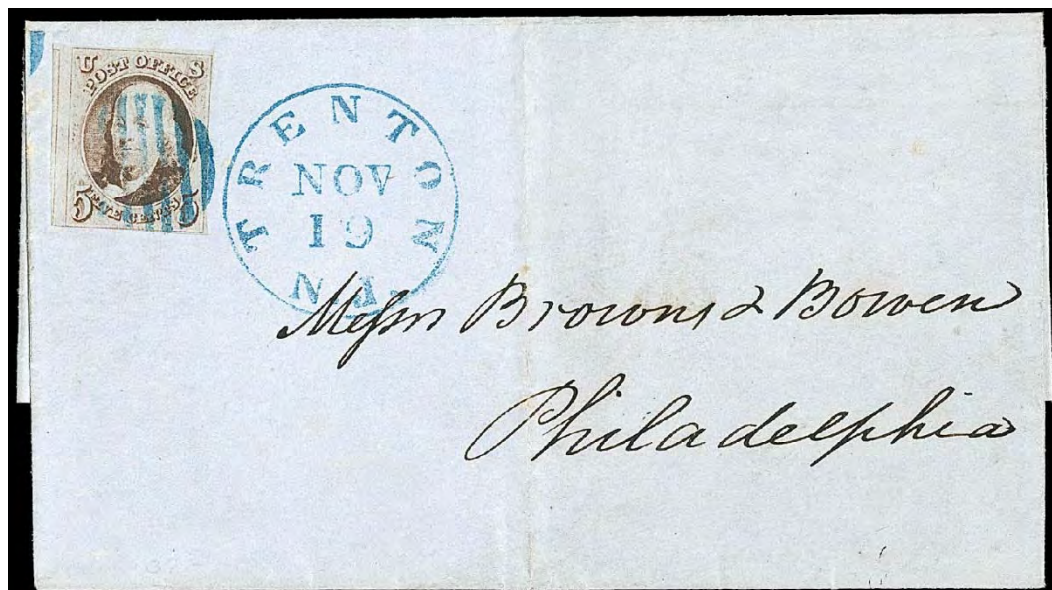 U S
POST OFFICE
5 FIVE CENTS 5
TRENTON
NOV
19
N.J.
Messrs Browns & Bowen
Philadelphia